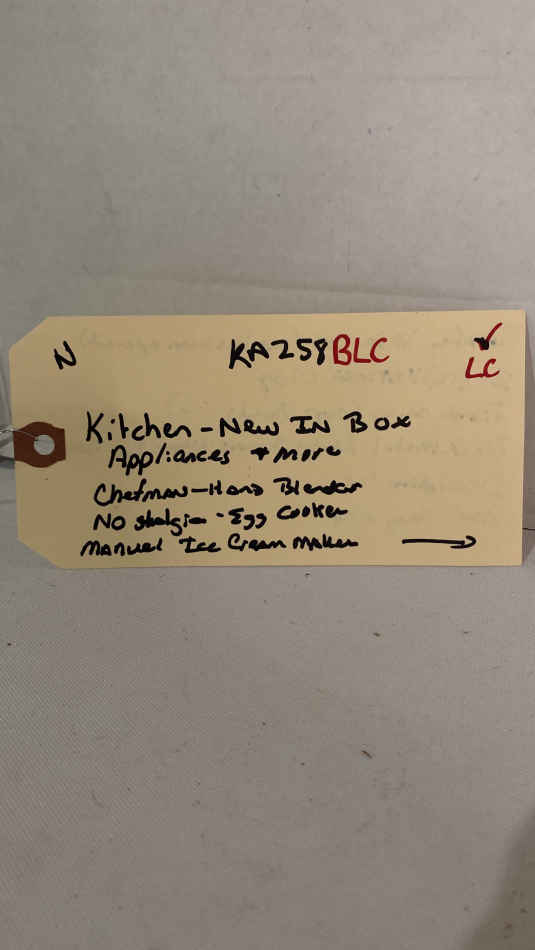 N KA258BLC ✓
LC
Kitchen - New In Box
Appliances + more
Chefman - Hand Blender
Nostalgia - Egg Cooker
Manual Ice Cream Maker →